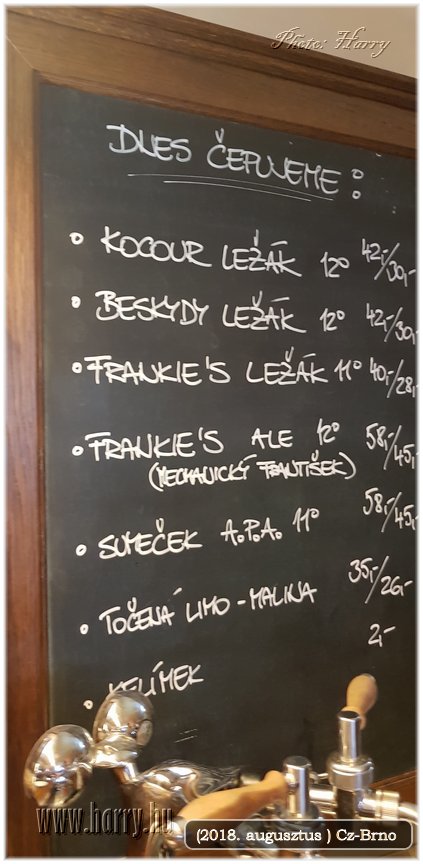 Photo: Harry
DNES ČEPUJEME:
• KOCOUR LEŽÁK 12° 42,-/30,-
• BESKYDY LEŽÁK 12° 42,-/30,-
• FRANKIE'S LEŽÁK 11° 40,-/28,-
• FRANKIE'S ALE 12° 58,-/45,-
(MECHANICKÝ FRANTIŠEK)
• SUMEČEK A.P.A. 11° 58,-/45,-
• TOČENÁ LIMO-MALINA 35,-/26,-
• KELÍMEK 2,-
www.harry.hu
(2018. augusztus ) Cz-Brno